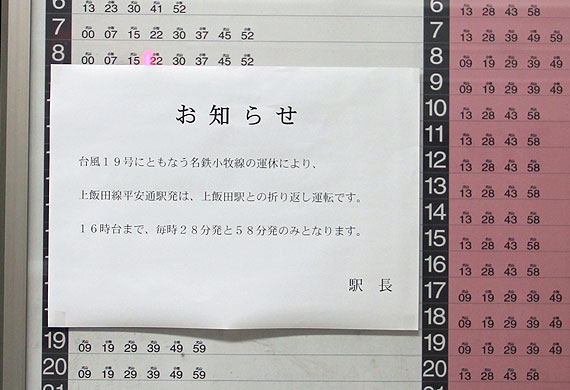 6 13 23 30 41 52
7 00 07 15 22 30 37 45 52
8 00 07 15 22 30 37 45 52
お知らせ
台風19号にともなう名鉄小牧線の運休により、
上飯田線平安通駅発は、上飯田駅との折り返し運転です。
16時台まで、毎時28分発と58分発のみとなります。
駅 長
19 09 19 29 39 49 59
20 09 19 29 39 49 59
6 13 28 43 58
7 13 28 39 49 59
8 09 19 29 39 49
9 09 19 29 39 49
10 13 28 43 58
11 13 28 43 58
12 13 28 43 58
13 13 28 43 58
14 13 28 43 58
15 13 28 43 58
16 13 28 43 58
17 09 19 29 39 49
18 09 19 29 39 49
19 09 19 29 39 49
20 13 28 43 58